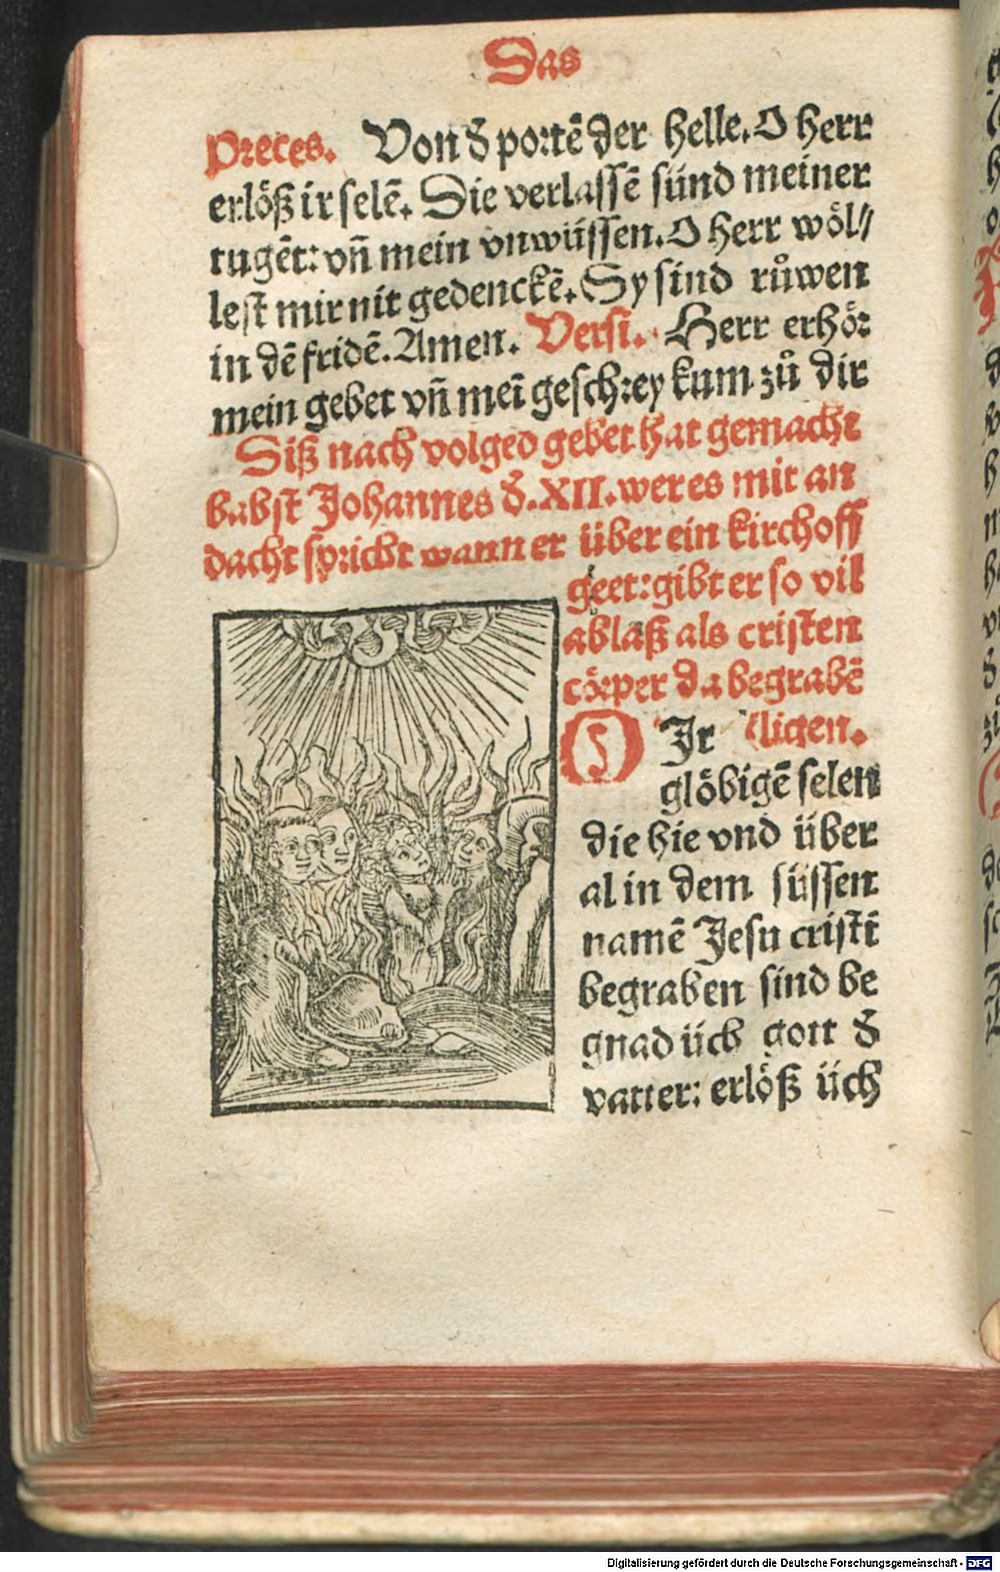 Das
Preces. Von d̕ portē der helle. O herr
erlöß ir selē. Die verlassē sünd meiner
tugēt: vn̄ mein vnwüssen. O herr wöl⸗
lest mir nit gedenckē. Sy sind růwen
in dē fridē. Amen. Versi. Herr erhör
mein gebet vn̄ meī geschrey kum zů dir
Diß nach volged gebet hat gemacht
babst Johannes d̕. XII. wer es mit an
dacht spricht wann er über ein kirchoff
geet: gibt er so vil
ablaß als cristen
cörper da begrabē
O Ir (ligen.
glöbigē selen
die hie vnd über
al in dem süssen
namē Jesu cristi
begraben sind be
gnad üch gott d̕
vatter: erlöß üch
Digitalisierung gefördert durch die Deutsche Forschungsgemeinschaft - DFG